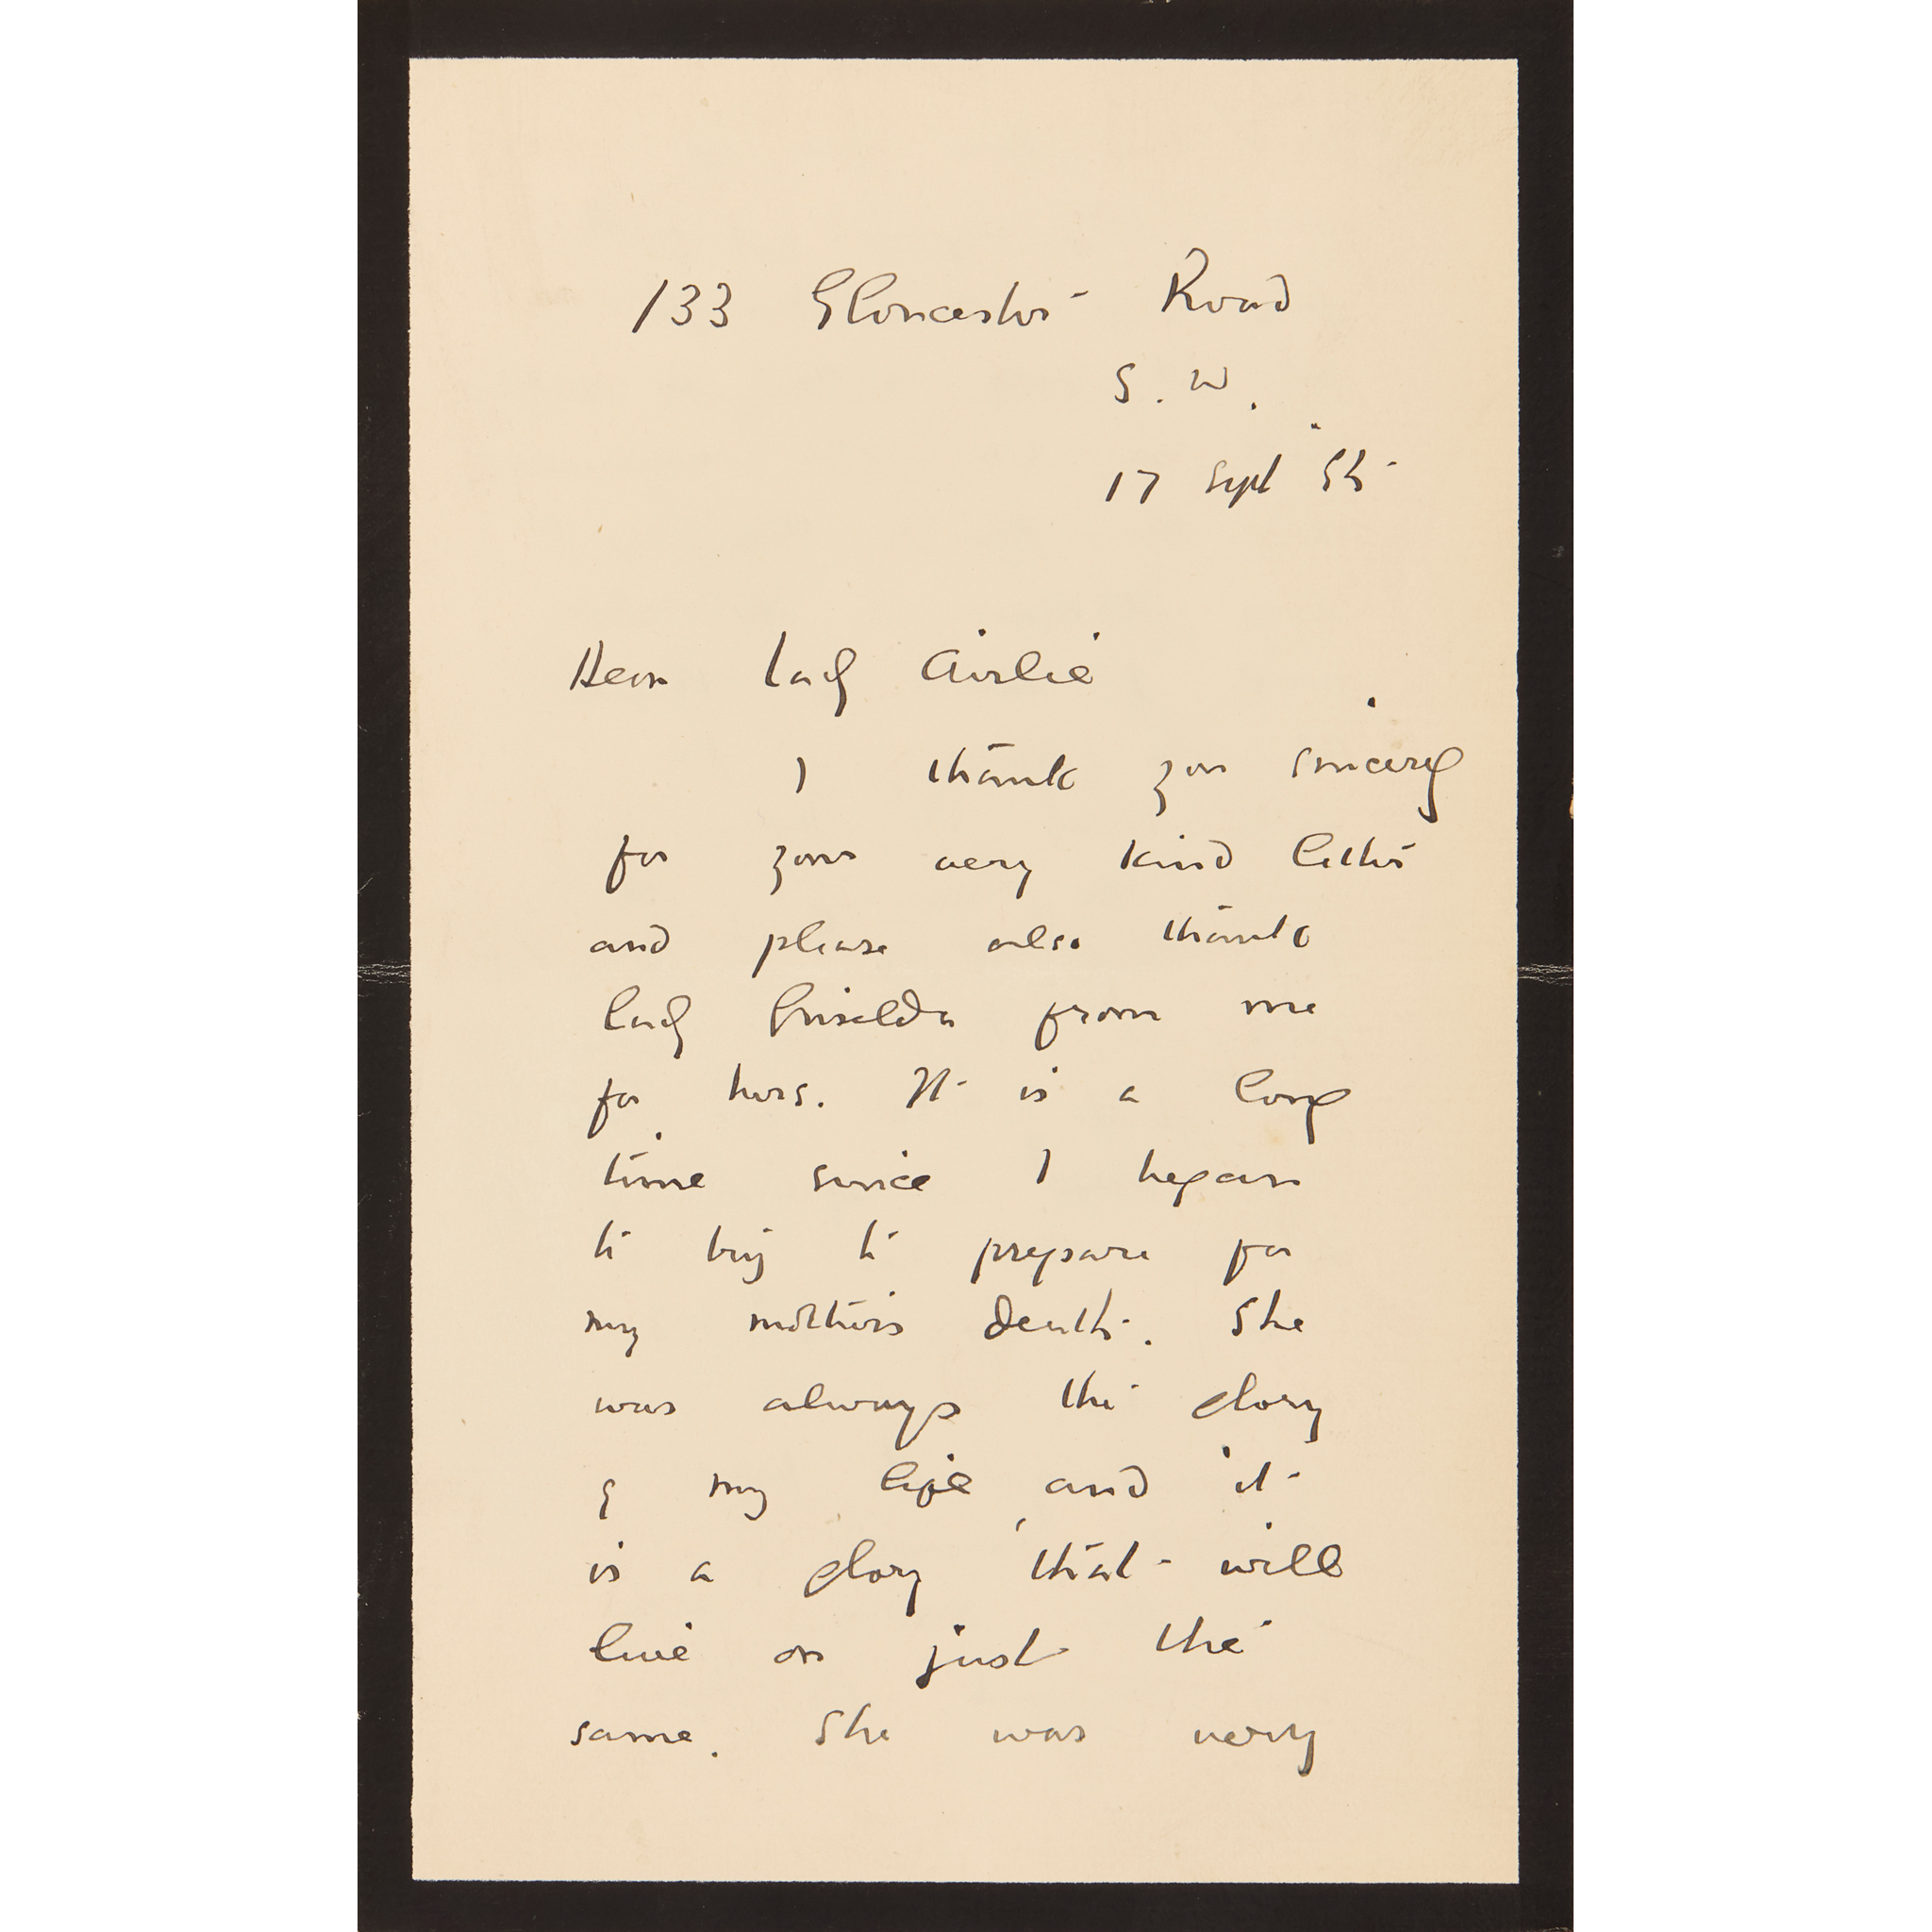 133 Gloucester Road
S. W.
17 Sept 95
Dear Lady Airlie
I thank you sincerely
for your very kind letter
and please also thank
Lady Griselda from me
for hers. It is a long
time since I began
to try to prepare for
my mother's death. She
was always the glory
of my life and it
is a glory that will
live on just the
same. She was very